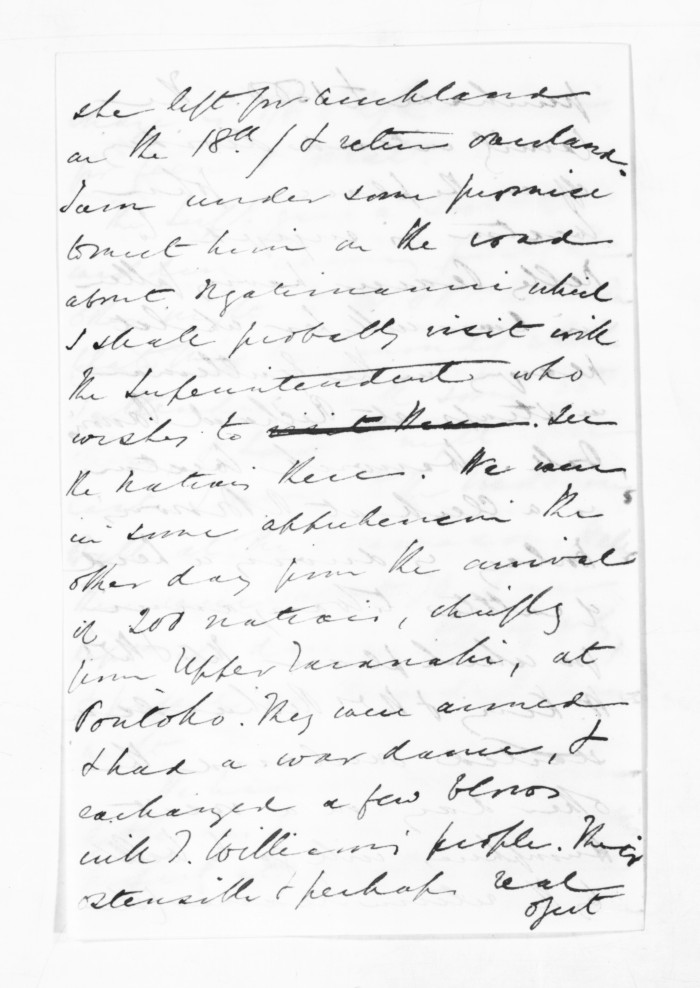 she left for Auckland
on the 18th / & return overland.
I am under some promise
to meet him on the road
about Ngatimaniu which
I shall probably visit with
the Superintendent who
wishes to visit them. See
the natives there. We were
in some apprehension the
other day from the arrival
of 200 natives, chiefly
from Upper Taranaki, at
Poutoko. They were armed
& had a war dance, &
exchanged a few blows
with T. Williams people. Their
ostensible & perhaps real
object